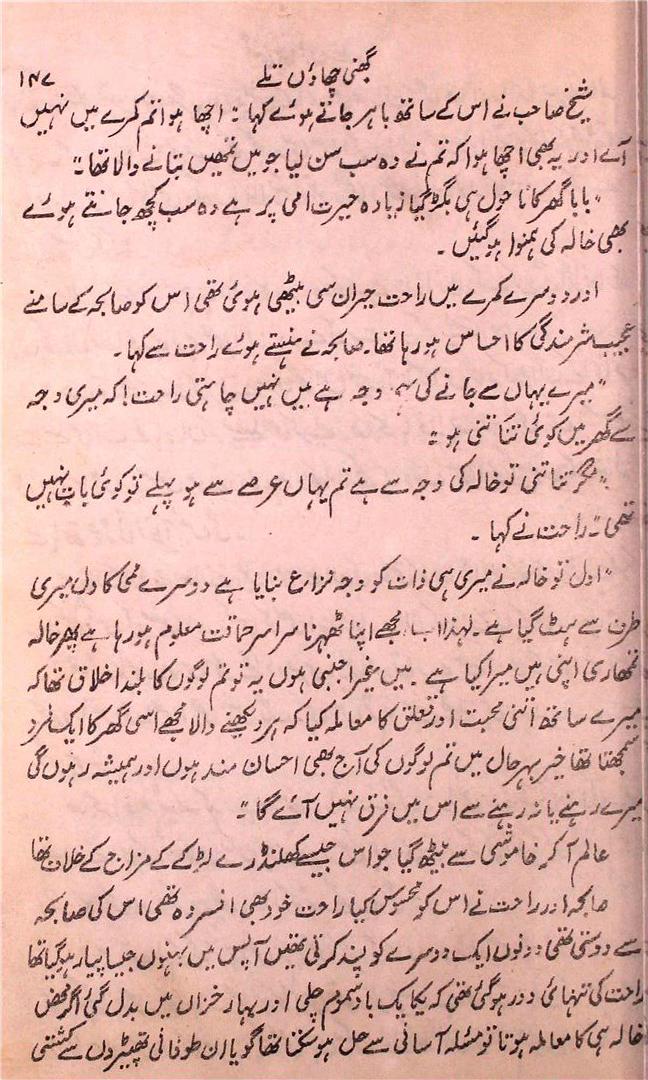 گھنی چھاؤں تلے ۱۴۷
شیخ صاحب نے اس کے ساتھ باہر جاتے ہوئے کہا: اچھا ہوا تم کمرے میں نہیں
آئے اور یہ بھی اچھا ہوا کہ تم نے وہ سب سن لیا جو میں تمھیں بتانے والا تھا"
"بابا گھر کا ماحول ہی بگڑ گیا زیادہ حیرت امی پر ہے وہ سب کچھ جانتے ہوئے
بھی خالہ کی ہمنوا ہو گئیں۔
اور دوسرے کمرے میں راحت حیران سی بیٹھی ہوئی تھی اس کو صابحہ کے سامنے
عجیب شرمندگی کا احساس ہو رہا تھا۔ صابحہ نے ہنستے ہوئے راحت سے کہا۔
"میرے یہاں سے جانے کی یہی وجہ ہے میں نہیں چاہتی راحت! کہ میری وجہ
سے گھر میں کوئی تنا تنی ہو"
"مگر تنا تنی تو خالہ کی وجہ سے ہے تم یہاں عرصے سے ہو پہلے تو کوئی بات نہیں
تھی" راحت نے کہا۔
"اول تو خالہ نے میری ہی ذات کو وجہ نزاع بنایا ہے دوسرے ممی کا دل میری
طرف سے ہٹ گیا ہے۔ لہٰذا اب مجھے اپنا ٹھہرنا سراسر حماقت معلوم ہو رہا ہے پھر خالہ
تمھاری اپنی ہیں میرا کیا ہے۔ میں غیر اجنبی ہوں یہ تو تم لوگوں کا بلند اخلاق تھا کہ
میرے ساتھ اتنی محبت اور تعلق کا معاملہ کیا کہ ہر دیکھنے والا مجھے اسی گھر کا ایک فرد
سمجھتا تھا خیر بہر حال میں تم لوگوں کی آج بھی احسان مند ہوں اور ہمیشہ رہوں گی
میرے رہنے یا نہ رہنے سے اس میں فرق نہیں آئے گا"
عالم آ کر خاموشی سے بیٹھ گیا جو اس جیسے کھلنڈرے لڑکے کے مزاج کے خلاف تھا
صابحہ اور راحت نے اس کو محسوس کیا راحت خود بھی افسردہ تھی اس کی صابحہ
سے دوستی تھی دونوں ایک دوسرے کو پسند کرتی تھیں آپس میں بہنوں جیسا پیار ہو گیا تھا
راحت کی تنہائی دور ہو گئی تھی کہ یکایک باد سموم چلی اور بہار خزاں میں بدل گئی اگر محض
خالہ ہی کا معاملہ ہوتا تو مسئلہ آسانی سے حل ہو سکتا تھا گویا ان طوفانی تھپیڑوں سے کشتی